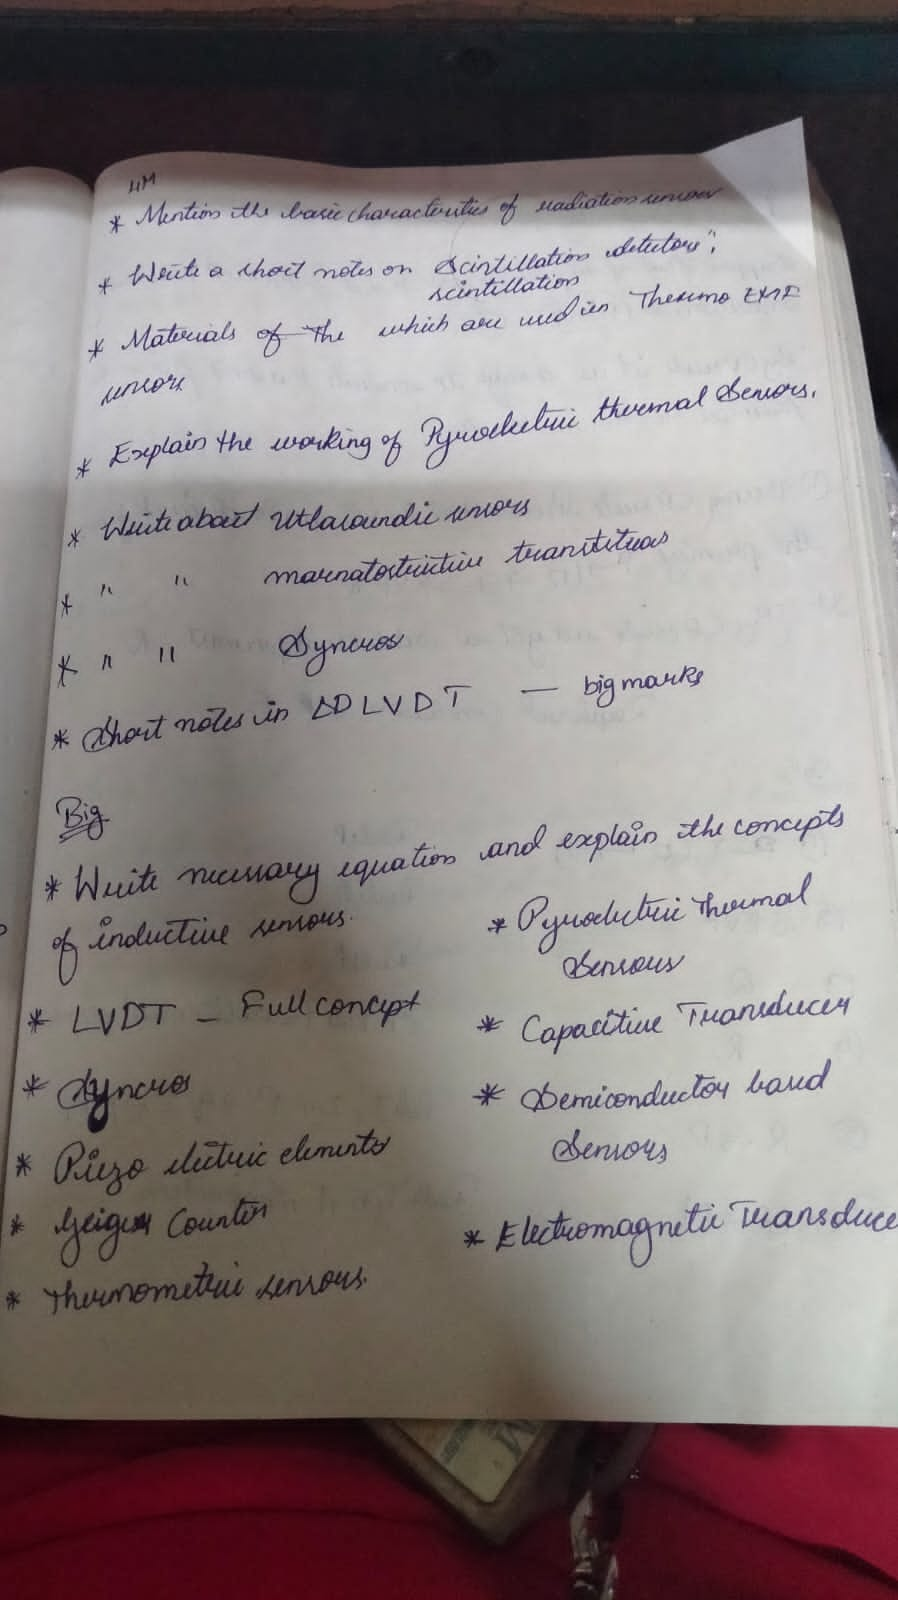 4M
* Mention the basic characteristics of radiation sensors
* Write a short notes on Scintillation detectors",
scintillation
* Materials of the which are used in Thermo EMF
sensors
* Explain the working of Pyroelectric thermal Sensors.
* Write about Utlasoundic sensors
* " " marnatostrictive
* " " Syncros
* Short notes in LVDT — big marks
Big
* Write necessary equation and explain the concepts
of inductive sensors.
* LVDT - Full concept
* Syncros
* Piezo electric elements
* Geiger Counter
* Thermometric sensors.
* Pyroelectric Thermal
Sensors
* Capacitive Transducer
* Semiconductor based
Sensors
* Electromagnetic Transduce